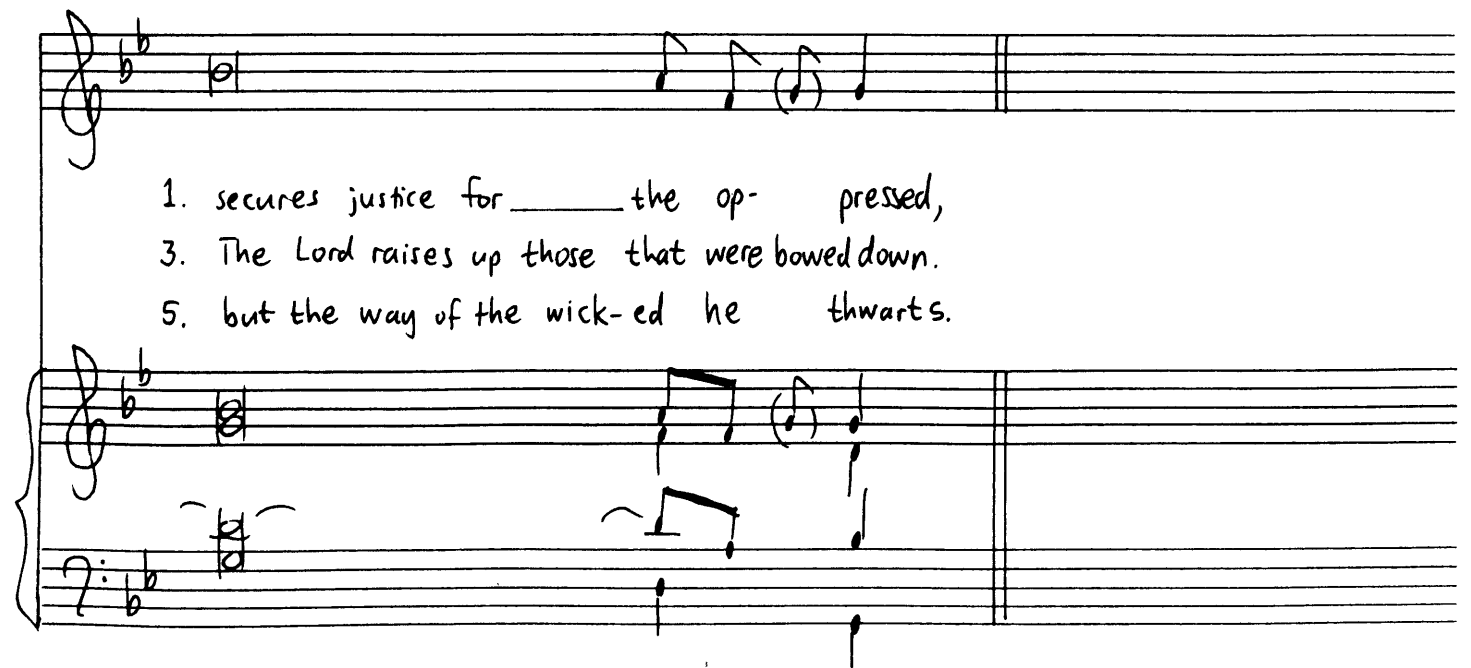 1. secures justice for ______ the op- pressed,
3. The Lord raises up those that were bowed down.
5. but the way of the wick-ed he thwarts.